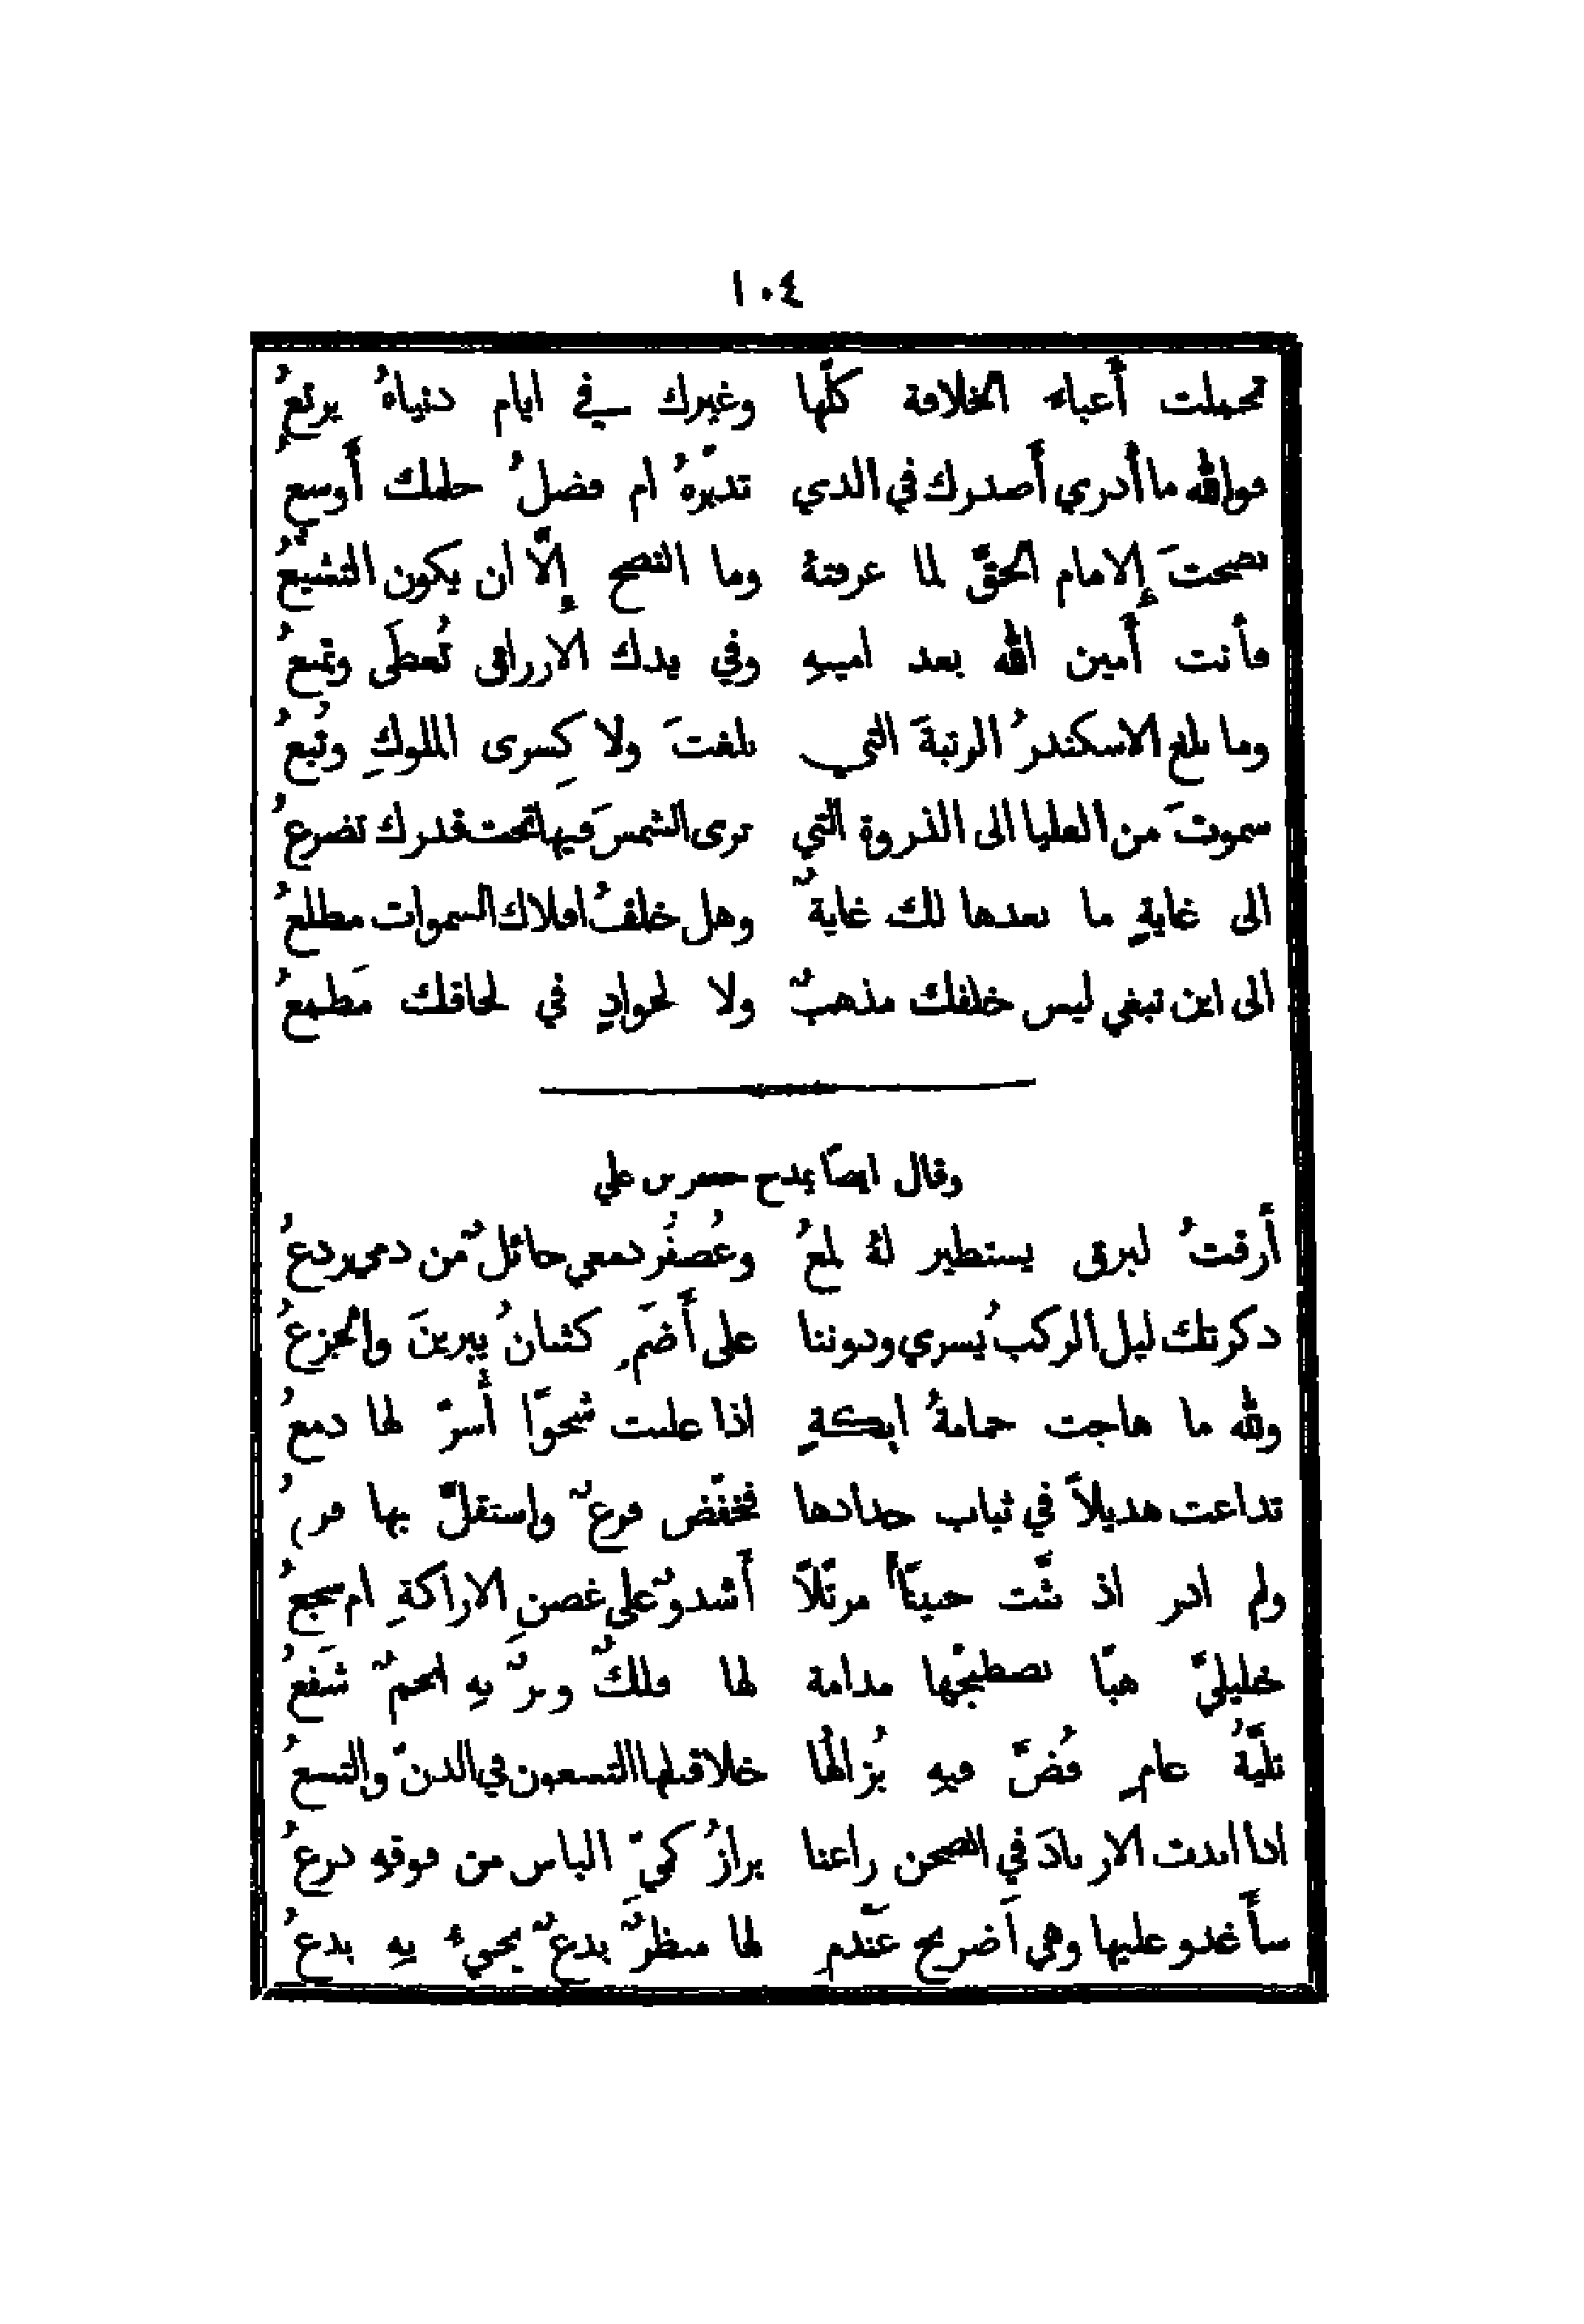 ١٠٤
تحملت أعباء الخلافة كلّها وغيرك في ايام دنياهُ يرتعُ
فوالله ما أدري أصدرك في الذي تدبّرهُ ام فضلُ حلمك أوسعُ
نصحتَ الإمام الحقّ لما عرفتهُ وما النصح إلّا ان يكون التشيّعُ
فأنت أمين الله بعد امينهِ وفي يدك الارزاق تُعطَى وتمنعُ
وما بلغ الاسكندرُ الرتبةَ التي بلغتَ ولا كِسرى الملوكِ وتُبعُ
سموتَ من العليا الى الذروة التي ترى الشمسَ فيها تحت قدرك تضرعُ
الى غايةٍ ما بعدها لك غايةٌ وهل خلفُ افلاك السموات مطلعُ
الى اين تبغي ليس خلفك مذهبٌ ولا لجوادٍ في لحاقك مَطمعُ
وقال ايضاً يمدح جعفر بن علي
أرقتُ لبرق يستطير لهُ لمعُ وعُصفُر دمعي حائلٌ من دمي ردعُ
ذكرتك ليل الركبُ يسري ودوننا على أَضَمٍ كثبانُ يبرينَ والجزعُ
ولله ما هاجت حمامةُ ايكةٍ اذا علنت شجوًا أُسرّ لها دمعُ
تداعت هديلاً في ثياب حدادها فخفّض فرعٌ واستقلّ بها فرعُ
ولم ادرِ اذ بثّت حنينًا مرتّلاً أشدوٌ على غصن الاراكةِ ام سجعُ
خليليّ هبّا نصطبحْها مدامة لها فلكٌ وترٌ بهِ انجمٌ شَفعُ
تليّةُ عامٍ فُضّ فيهِ بُزالُها خلا قبلها التسعون في الدنّ والتسعُ
اذا ابدت الازبادَ في الصحن راعنا برازُ كميّ الباس من فوقهِ درعُ
سأغدو عليها وهي اَضريج عَندمٍ لها منظرٌ بدعٌ يجيءُ بهِ بدعُ